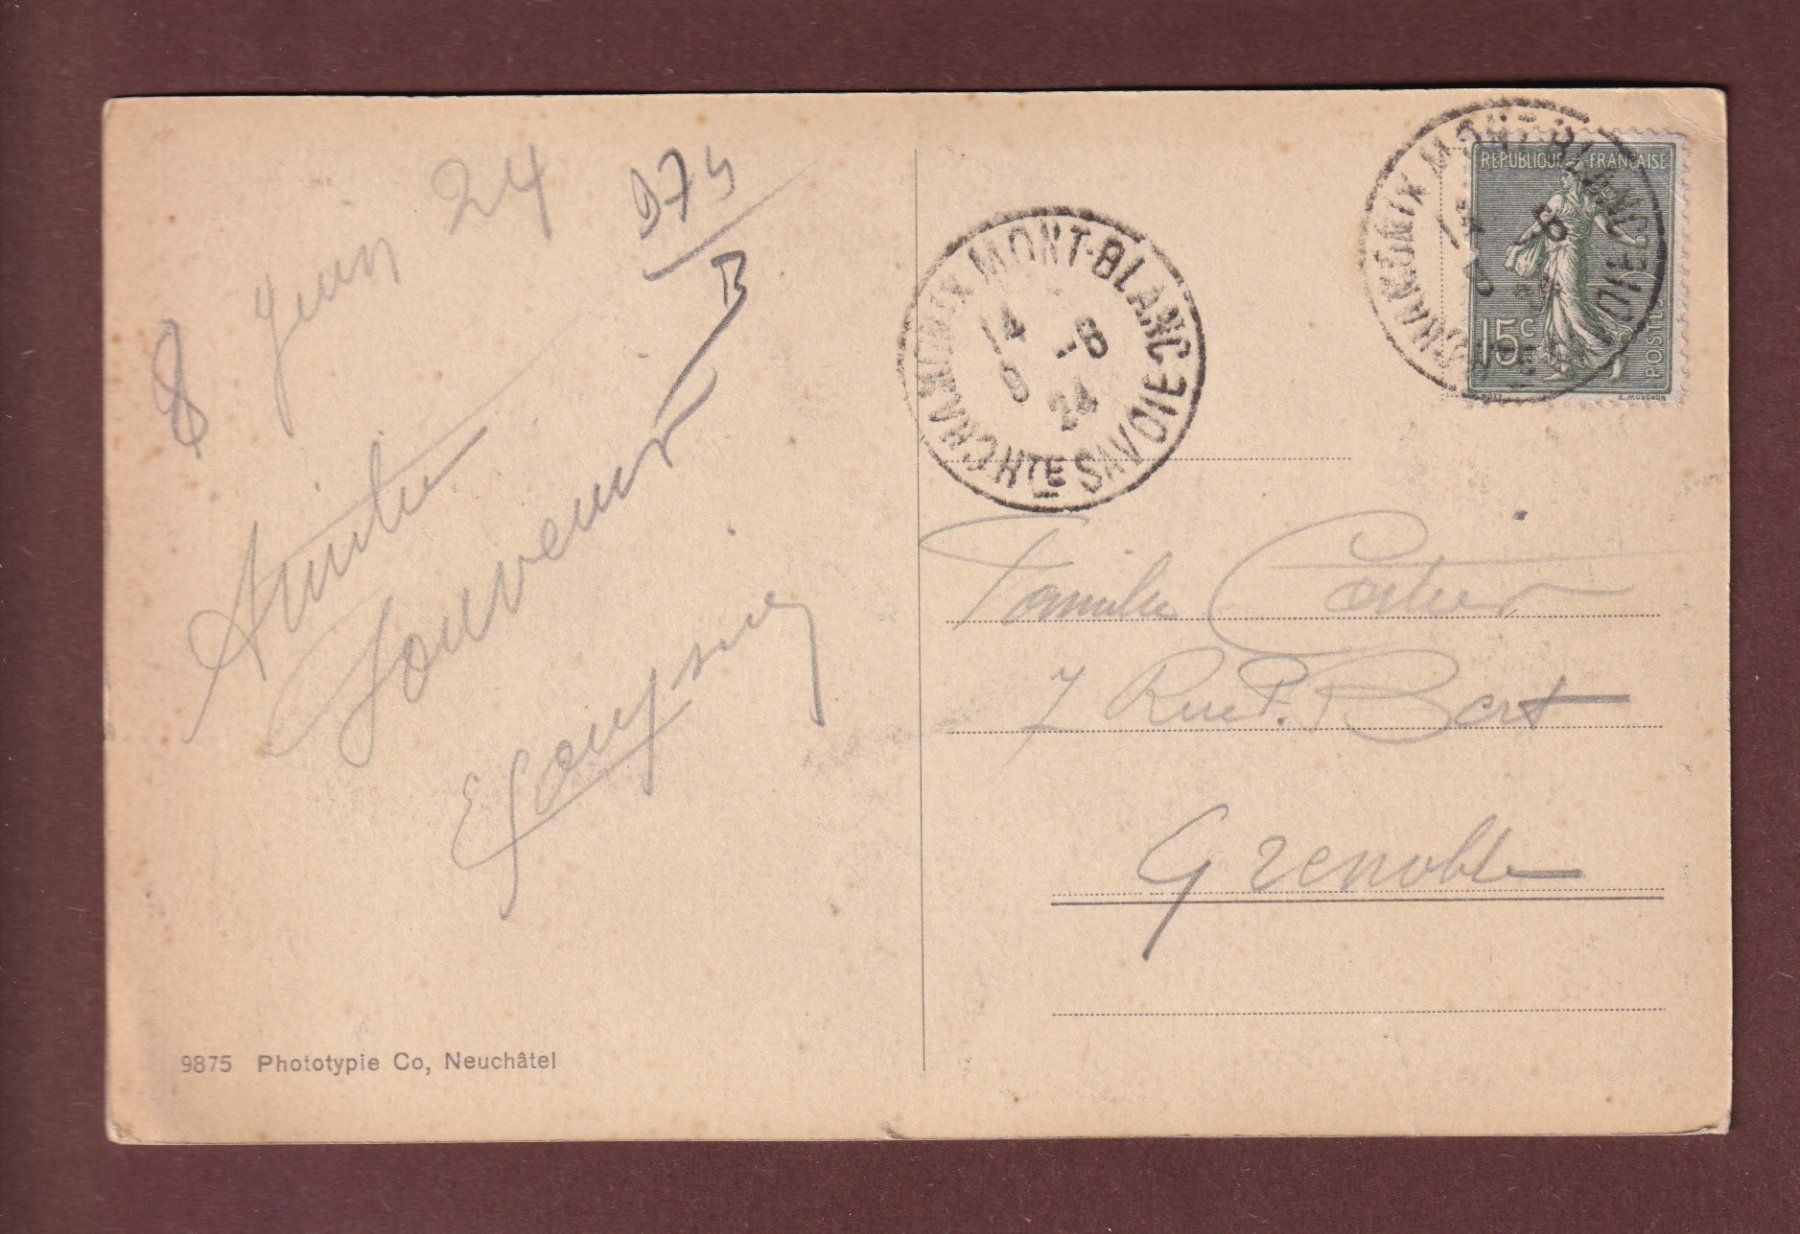 8 Juin 24
974
B
Amitié
Souvenir
9875 Phototypie Co, Neuchâtel
CHAMONIX MONT-BLANC
14 -8
24
HTE SAVOIE
REPUBLIQUE FRANÇAISE
15c
POSTES
CHAMONIX MONT-BLANC
HTE SAVOIE
Famille Cartier
7 Rue P. Bert
Grenoble